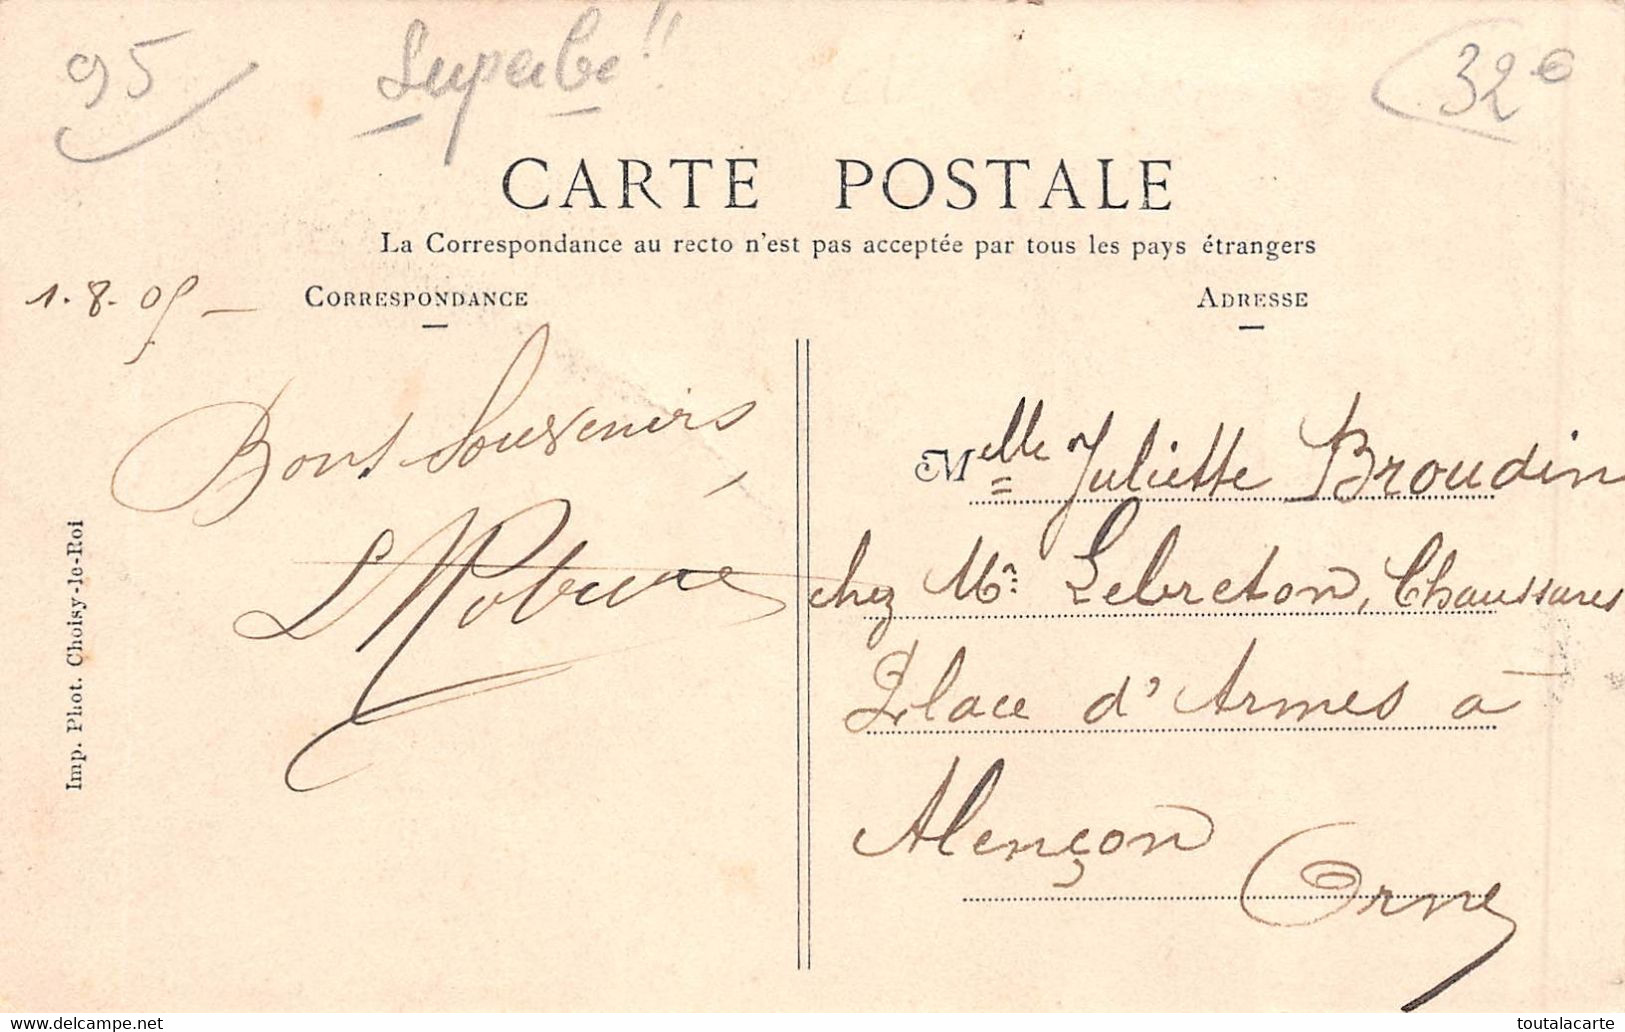 95
Superbe !!
32 €
CARTE POSTALE
La Correspondance au recto n'est pas acceptée par tous les pays étrangers
1.8.05 —
CORRESPONDANCE
ADRESSE
Bons Souvenirs
Melle Juliette Broudin
chez Mr. Lebreton, Chaussures
Place d'Armes à
Alençon
Orne
Imp. Phot. Choisy-le-Roi
www.delcampe.net
toutalacarte